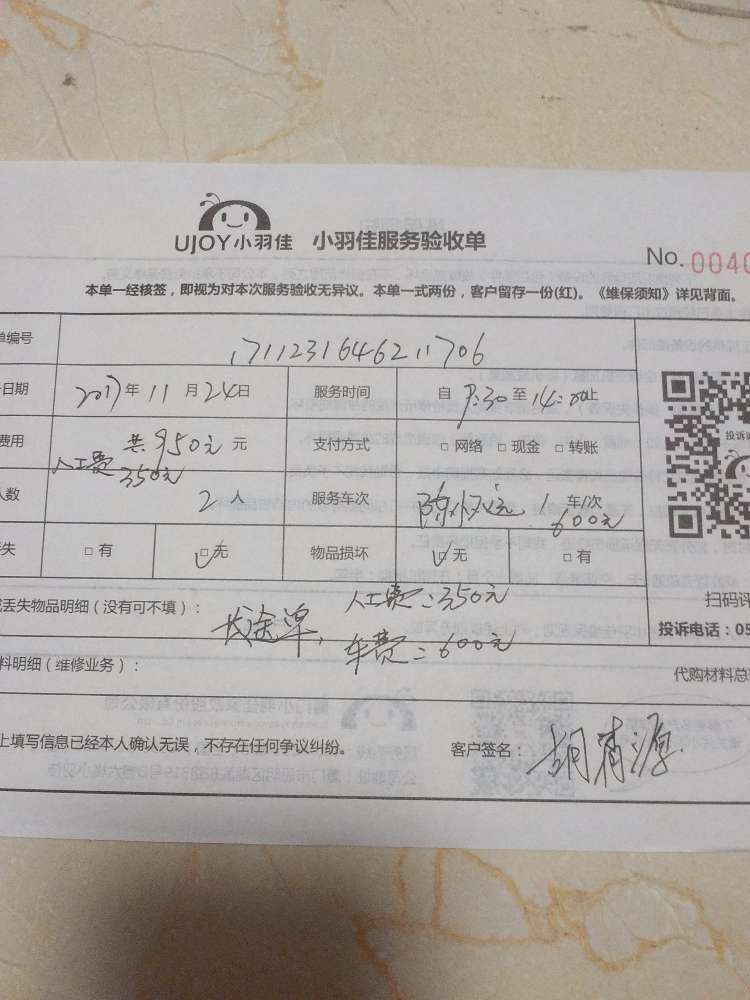 UJOY小羽佳 小羽佳服务验收单
No. 0040
本单一经核签，即视为对本次服务验收无异议。本单一式两份，客户留存一份(红)。《维保须知》详见背面。
单编号 1711231646211706
日期 2017年 11月 24日 服务时间 自 9:30 至 14:00止
费用 共950元 元 支付方式 □网络 □现金 □转账
人工费350元
人数 2人 服务车次 1 车/次
600元
失 □有 □无 物品损坏 □无 □有
丢失物品明细（没有可不填）： 长途单， 人工费：350元
车费：600元
料明细（维修业务）：
代购材料总
上填写信息已经本人确认无误，不存在任何争议纠纷。 客户签名： 胡有源
投诉
扫码评
投诉电话：05